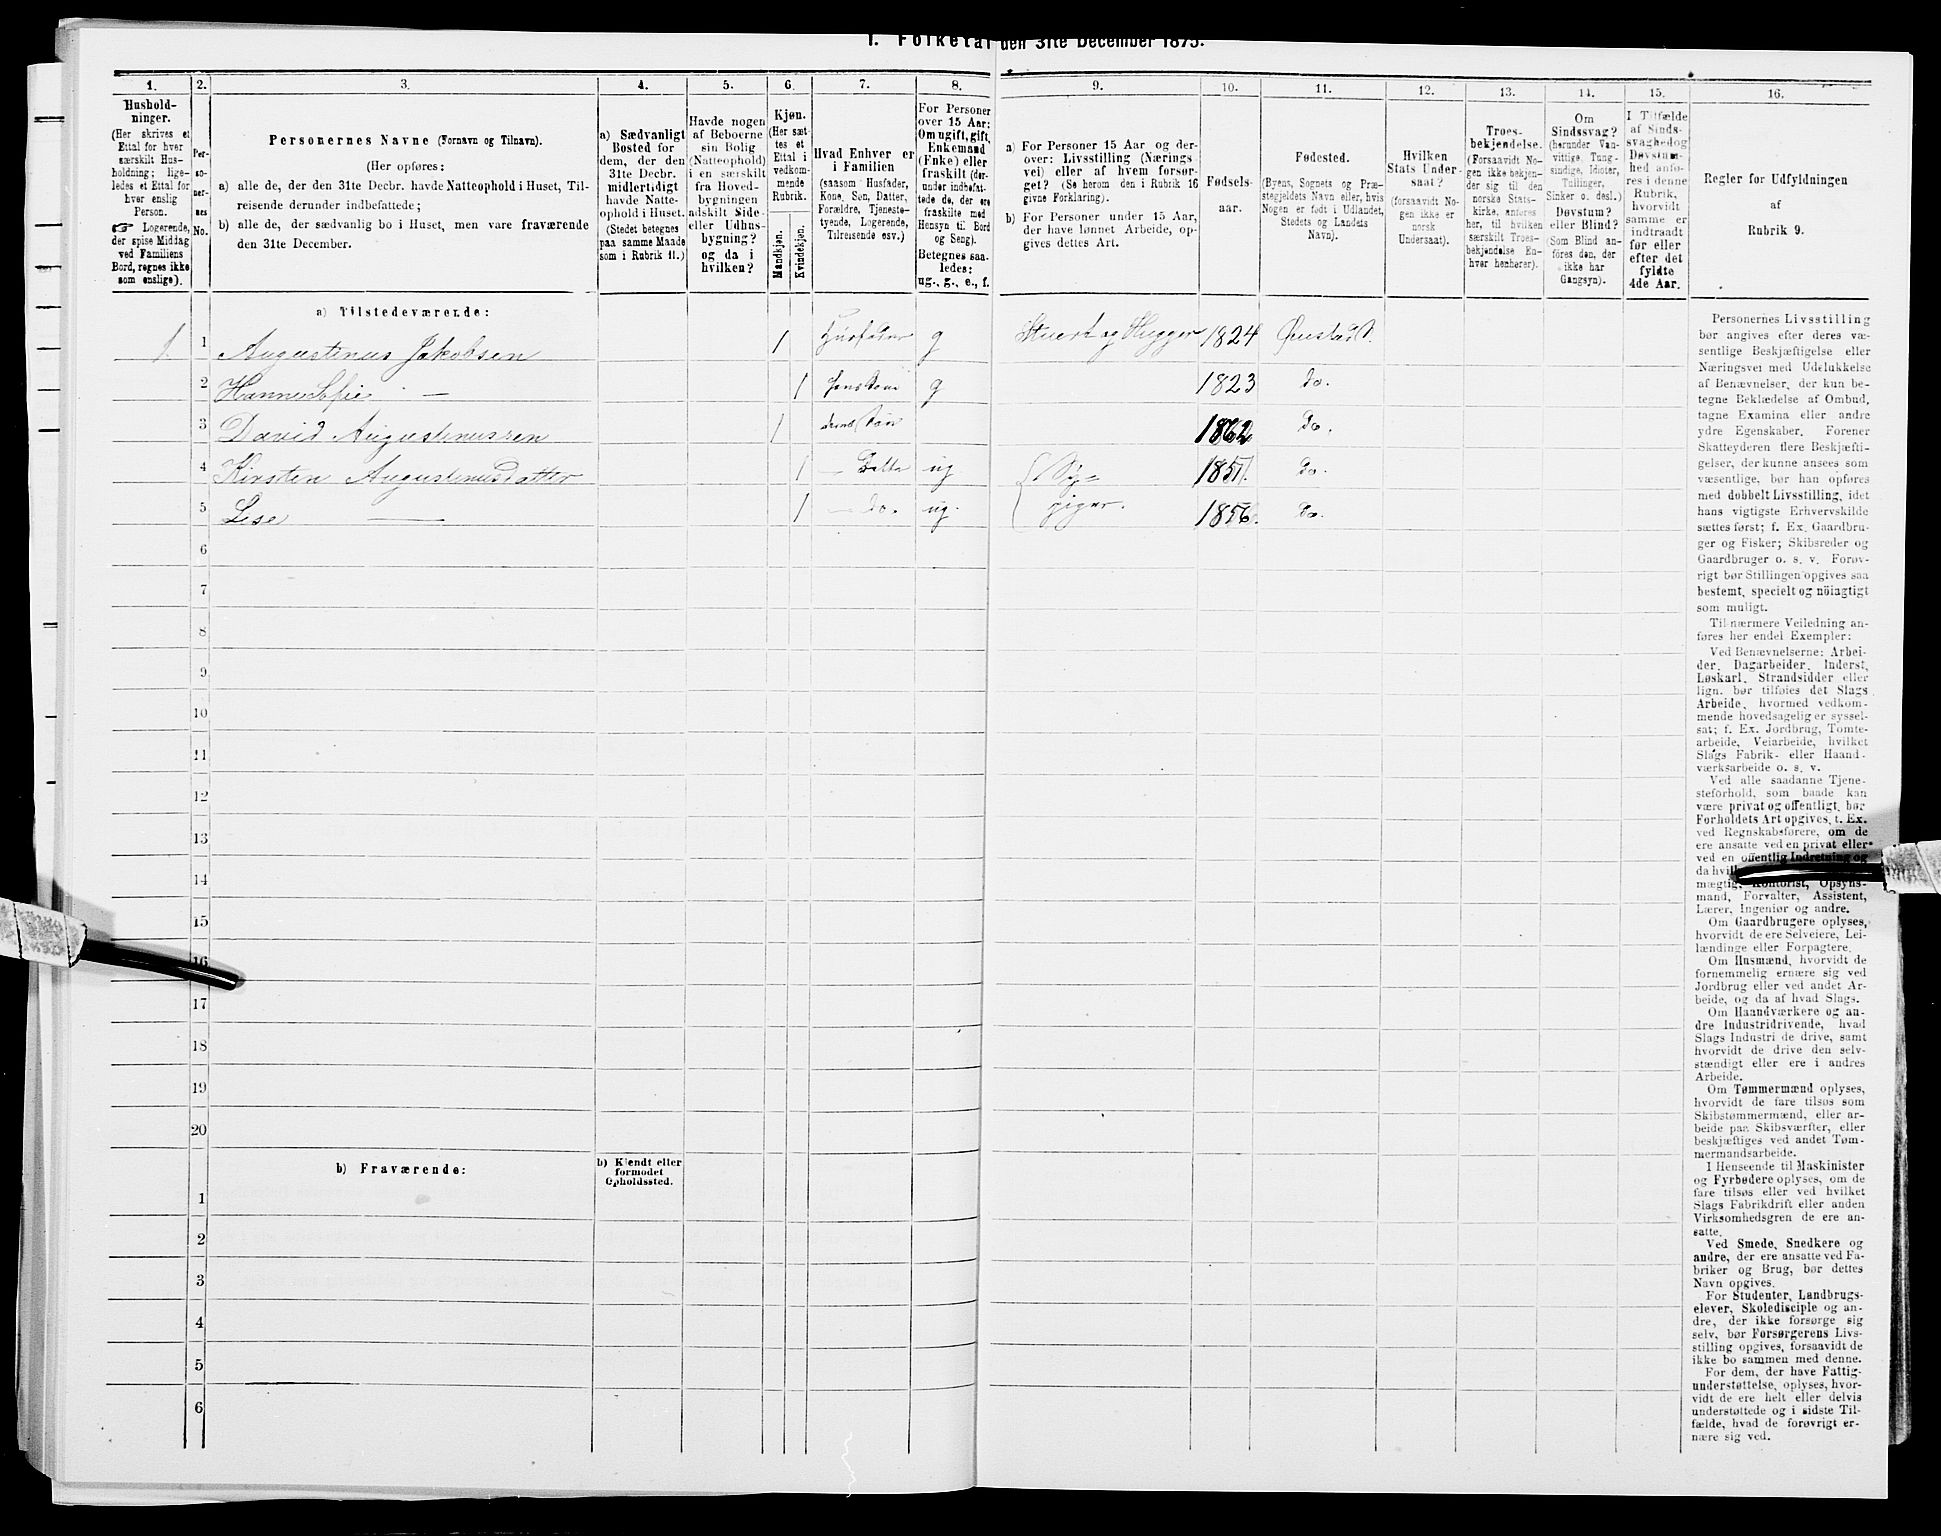 I. Folketal den 31te December 1875.
1. 2. 3. 4. 5. 6. 7. 8. 9. 10. 11. 12. 13. 14. 15. 16.
Hushold-
ninger.
(Her skrives et
Ettal for hver
særskilt Hus-
holdning; lige-
ledes et Ettal for
hver enslig
Person.
☞ Logerende,
der spise Middag
ved Familiens
Bord, regnes ikke
som enslige).
Per-
so-
ner-
nes
No.
Personernes Navne (Fornavn og Tilnavn).
(Her opføres:
a) alle de, der den 31te Decbr. havde Natteophold i Huset, Til-
reisende derunder indbefattede;
b) alle de, der sædvanlig bo i Huset, men vare fraværende
den 31te December.
a) Sædvanligt
Bosted for
dem, der den
31te Decbr.
midlertidigt
havde Natte-
ophold i Huset.
(Stedet betegnes
paa samme Maade
som i Rubrik 11.)
Havde nogen
af Beboerne
sin Bolig
(Natteophold)
i en særskilt
fra Hoved-
bygningen
adskilt Side-
eller Udhus-
bygning?
og da i
hvilken?
Kjøn.
(Her sæt-
tes et
Ettal i
vedkom-
mende
Rubrik.
Mandkjøn.
Kvindekjøn.
Hvad Enhver er
i Familien
(saasom Husfader,
Kone, Søn, Datter,
Forældre, Tjeneste-
tyende, Logerende,
Tilreisende osv.)
For Personer
over 15 Aar:
Om ugift, gift,
Enkemand
(Enke) eller
fraskilt (der-
under indbefat-
tede de, der ere
fraskilte med
Hensyn til Bord
og Seng).
Betegnes saa-
ledes:
ug., g., e., f.
a) For Personer 15 Aar og der-
over: Livsstilling (Nærings-
vei) eller af hvem forsør-
get? (Se herom den i Rubrik 16
givne Forklaring).
b) For Personer under 15 Aar,
der have lønnet Arbeide, op-
gives dettes Art.
Fødsels-
aar.
Fødested.
(Byens, Sognets og Præ-
stegjeldets Navn eller, hvis
Nogen er født i Udlandet,
Stedets og Landets
Navn).
Hvilken
Stats Under-
saat?
(forsaavidt No-
gen ikke er
norsk
Undersaat).
Troes-
bekjendelse.
(Forsaavidt No-
gen ikke bekjen-
der sig til den
norske Stats-
kirke, anføres
her, til hvilken
særskilt Troes-
bekjendelse En-
hver henhører).
Om
Sindssvag?
(herunder Van-
vittige, Tung-
sindige, Idioter,
Tullinger,
Sinker o. desl.)
Døvstum?
eller Blind?
(Som Blind an-
føres den, der
ikke har
Gangsyn).
I Tilfælde
af Sinds-
svaghed og
Døvstum-
hed anfø-
res i denne
Rubrik,
hvorvidt
samme er
indtraadt
før eller
efter det
fyldte
4de Aar.
Regler for Udfyldningen
af
Rubrik 9.
a) Tilstedeværende:
1 1 Augustinus Jakobsen 1 Husfader g Stuert og Hugger 1824 Øiestad S.
2 Hanne Sofie — 1 g 1823 do.
3 David Augustinussen 1 Søn 1862 do.
4 Kirsten Augustinusdatter 1 — Datter ug 1851. do.
5 Lise — 1 — do. ug. 1856. do.
6
7
8
9
10
11
12
13
14
15
16
17
18
19
20
b) Fraværende:
b) Kjendt eller
formodet
Opholdssted.
1
2
3
4
5
6
Personernes Livsstilling
bør angives efter deres væ-
sentlige Beskjæftigelse eller
Næringsvei med Udelukkelse
af Benævnelser, der kun be-
tegne Beklædelse af Ombud,
tagne Examina eller andre
ydre Egenskaber. Forener
Skatteyderen flere Beskjæfti-
gelser, der kunne ansees som
væsentlige, bør han opføres
med dobbelt Livsstilling, idet
hans vigtigste Erhvervskilde
sættes først; f. Ex. Gaardbru-
ger og Fisker; Skibsreder og
Gaardbruger o. s. v. Forøv-
rigt bør Stillingen opgives saa
bestemt, specielt og nöiagtigt
som muligt.
Til nærmere Veiledning an-
føres her endel Exempler:
Ved Benævnelserne: Arbei-
der, Dagarbeider, Inderst,
Løskarl, Strandsidder eller
lign. bør tilføies det Slags
Arbeide, hvormed vedkom-
mende hovedsagelig er syssel-
sat; f. Ex. Jordbrug, Tomte-
arbeide, Veiarbeide, hvilket
Slags Fabrik- eller Haand-
værksarbeide o. s. v.
Ved alle saadanne Tjene-
steforhold, som baade kan
være privat og offentligt, bør
Forholdets Art opgives, t. Ex.
ved Regnskabsførere, om de
ere ansatte ved en privat eller
ved en offentlig Indretning og
da
Kontorist, Opsyns-
mand, Forvalter, Assistent,
Lærer, Ingeniør og andre.
Om Gaardbrugere oplyses,
hvorvidt de ere Selveiere, Lei-
lændinge eller Forpagtere.
Om Husmænd, hvorvidt de
fornemmelig ernære sig ved
Jordbrug eller ved andet Ar-
beide, og da af hvad Slags.
Om Haandværkere og an-
dre Industridrivende, hvad
Slags Industri de drive, samt
hvorvidt de drive den selv-
stændigt eller ere i andres
Arbeide.
Om Tømmermænd oplyses,
hvorvidt de fare tilsøs som
Skibstømmermænd, eller ar-
beide paa Skibsværfter, eller
beskjæftiges ved andet Tøm-
mermandsarbeide.
I Henseende til Maskinister
og Fyrbødere oplyses, om de
fare tilsøs eller ved hvilket
Slags Fabrikdrift eller anden
Virksomhedsgren de ere an-
satte.
Ved Smede, Snedkere og
andre, der ere ansatte ved Fa-
briker og Brug, bør dettes
Navn opgives.
For Studenter, Landbrugs-
elever, Skoledisciple og an-
dre, der ikke forsørge sig
selv, bør Forsørgerens Livs-
stilling opgives, forsaavidt de
ikke bo sammen med denne.
For dem, der have Fattig-
understøttelse, oplyses, hvor-
vidt de ere helt eller delvis
understøttede og i sidste Til-
fælde, hvad de forøvrigt er-
nære sig ved.